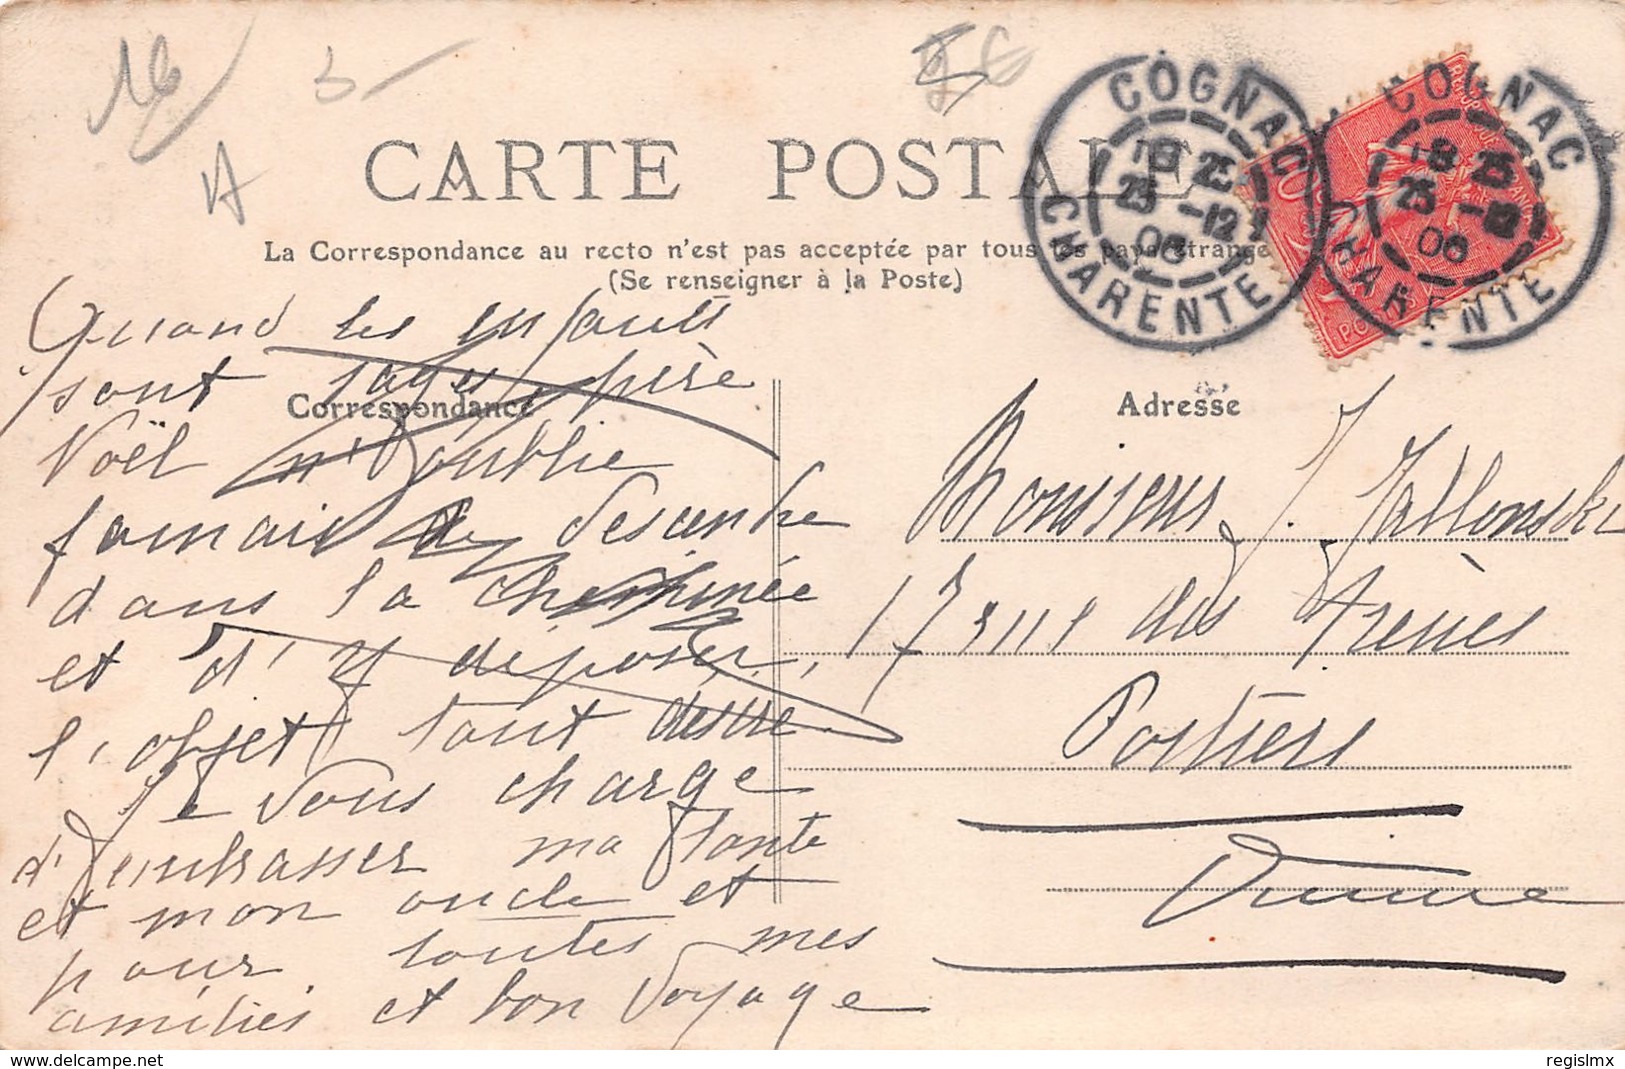 16
3-
A
CARTE POSTALE
La Correspondance au recto n'est pas acceptée par tous les pays étrange
(Se renseigner à la Poste)
COGNAC
18 25
25 -12
06
CHARENTE
COGNAC
18 25
25 -12
06
CHARENTE
Correspondance
Adresse
Quand les enfants
sont sages père
Noël n'oublie
jamais de descendre
dans la cheminée
et d'y déposer,
l'objet tant désiré
Je vous charge
d'embrasser ma tante
et mon oncle et
pour toutes mes
amitiés et bon voyage
Monsieur J. Jallonski
17 rue des Arènes
Poitiers
Vienne
regislmx